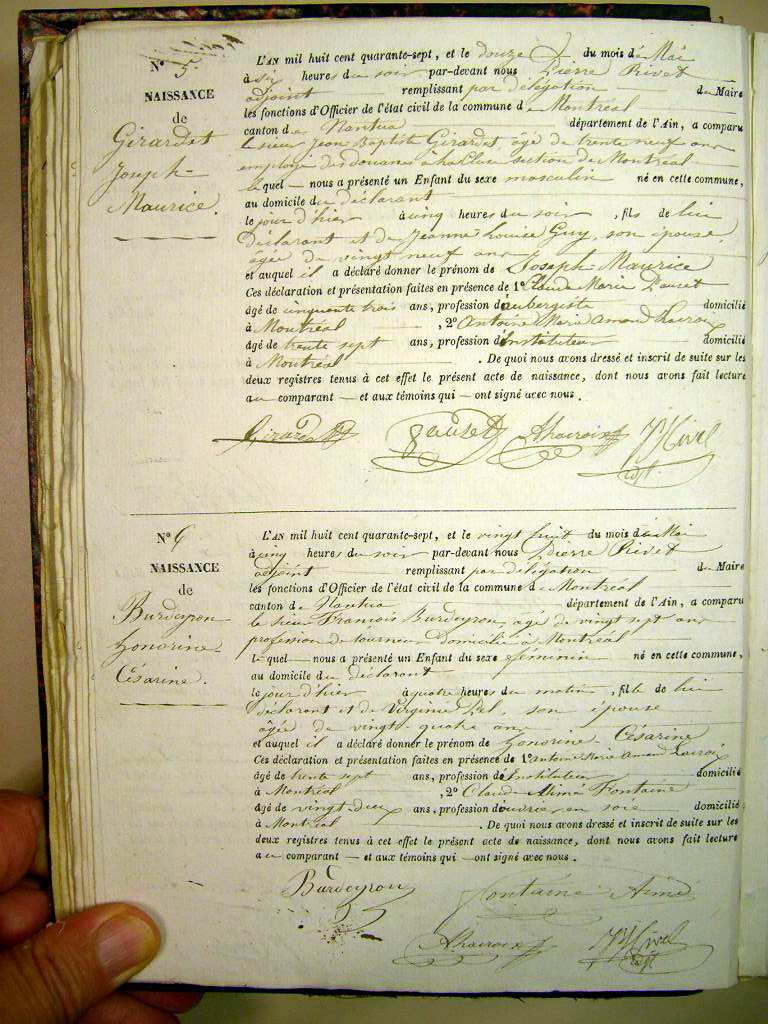 N° 5
NAISSANCE
de
Girardet
Joseph-
Maurice.
L'AN mil huit cent quarante-sept, et le douze du mois de Mai
à six heures du soir par-devant nous Pierre Rivet
adjoint remplissant par délégation du Maire
les fonctions d'Officier de l'état civil de la commune de Montréal
canton de Nantua département de l'Ain, a comparu
le sieur Jean Baptiste Girardet, âgé de trente neuf ans
employé des douanes à section de Montréal
lequel — nous a présenté un Enfant du sexe masculin né en cette commune,
au domicile du déclarant
le jour d'hier à cinq heures du soir, fils de lui
déclarant et de Jeanne Louise Guy, son épouse,
âgée de vingt neuf ans
et auquel il a déclaré donner le prénom de Joseph Maurice
Ces déclaration et présentation faites en présence de 1° Claude Marie
âgé de cinquante trois ans, profession d'aubergiste domicilié
à Montréal, 2° Antoine Marie Amand Lacroix
âgé de trente sept ans, profession d'Instituteur domicilié
à Montréal. De quoi nous avons dressé et inscrit de suite sur les
deux registres tenus à cet effet le présent acte de naissance, dont nous avons fait lecture
au comparant — et aux témoins qui — ont signé avec nous.
Girardet Lacroix Rivet
adjt
N° 6
NAISSANCE
de
Burdeyron
honorine-
Césarine.
L'AN mil huit cent quarante-sept, et le vingt huit du mois de Mai
à cinq heures du soir par-devant nous Pierre Rivet
adjoint remplissant par délégation du Maire
les fonctions d'Officier de l'état civil de la commune de Montréal
canton de Nantua département de l'Ain, a comparu
le sieur François Burdeyron, âgé de vingt sept ans
profession de tourneur domicilié à Montréal
lequel — nous a présenté un Enfant du sexe féminin né en cette commune,
au domicile du déclarant
le jour d'hier à quatre heures du matin, fille de lui
déclarant et de Virginie son épouse
âgée de vingt-quatre ans
et auquel il a déclaré donner le prénom de honorine Césarine
Ces déclaration et présentation faites en présence de 1° antoine Marie amand Lacroix
âgé de trente sept ans, profession d'Instituteur domicilié
à Montréal, 2° Claude Aimé Fontaine
âgé de vingt-deux ans, profession d'ouvrier en soie domicilié
à Montréal. De quoi nous avons dressé et inscrit de suite sur les
deux registres tenus à cet effet le présent acte de naissance, dont nous avons fait lecture
au comparant — et aux témoins qui — ont signé avec nous.
Burdeyron fontaine Aimé
Lacroix Rivet
adjt